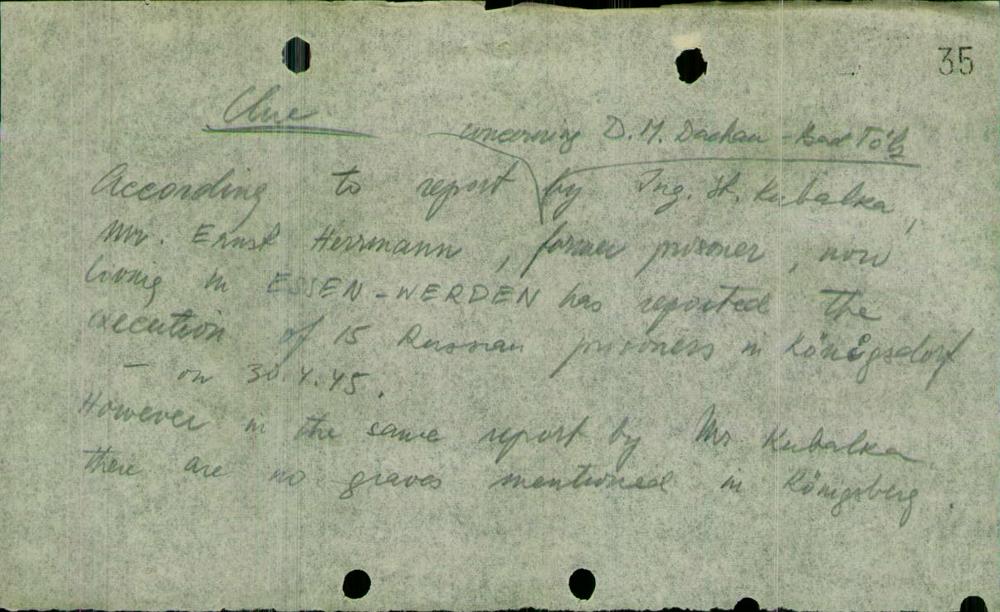 35
Clue
concerning D.M. Dachau - Bad Tölz
According to report by Ing. St. Kubalka,
Mr. Ernst Herrmann, former prisoner, now
living in ESSEN-WERDEN has reported the
execution of 15 Russian prisoners in Königsdorf
- on 30.4.45.
However in the same report by Mr. Kubalka
there are no graves mentioned in Königsberg.